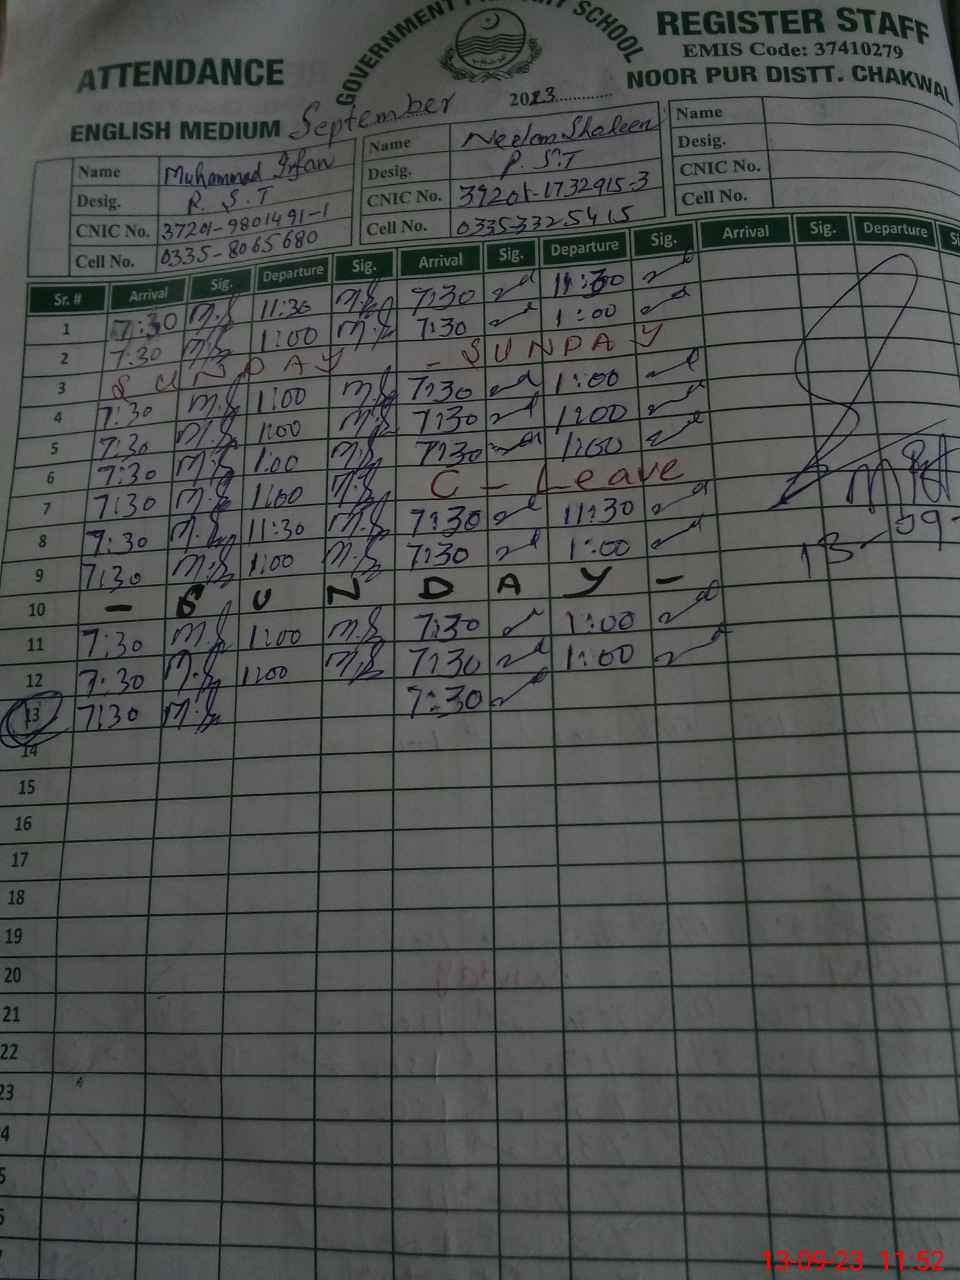 GOVERNMENT PRIMARY SCHOOL
ATTENDANCE
REGISTER STAFF
EMIS Code: 37410279
NOOR PUR DISTT. CHAKWAL
ENGLISH MEDIUM September 2023
Name Muhammad Irfan Name Neelam Shaheen Name
Desig. P.S.T Desig. P.S.T Desig.
CNIC No. 37201-9801491-1 CNIC No. 37201-1732915-3 CNIC No.
Cell No. 0335-8065680 Cell No. 0335-3325415 Cell No.
Sr. # Arrival Sig. Departure Sig. Arrival Sig. Departure Sig. Arrival Sig. Departure Si
1 7:30 11:30 7:30 11:30
2 7:30 1:00 7:30 1:00
3 SUNDAY - SUNDAY
4 7:30 1:00 7:30 1:00
5 7:30 1:00 7:30 1:00
6 7:30 1:00 7:30 1:00
7 7:30 1:00 C - Leave
8 7:30 11:30 7:30 11:30
9 7:30 1:00 7:30 1:00
10 - SUNDAY -
11 7:30 1:00 7:30 1:00
12 7:30 1:00 7:30 1:00
13 7:30 7:30
13-09-
14
15
16
17
18
19
20
21
22
23
4
5
13-09-23 11:52